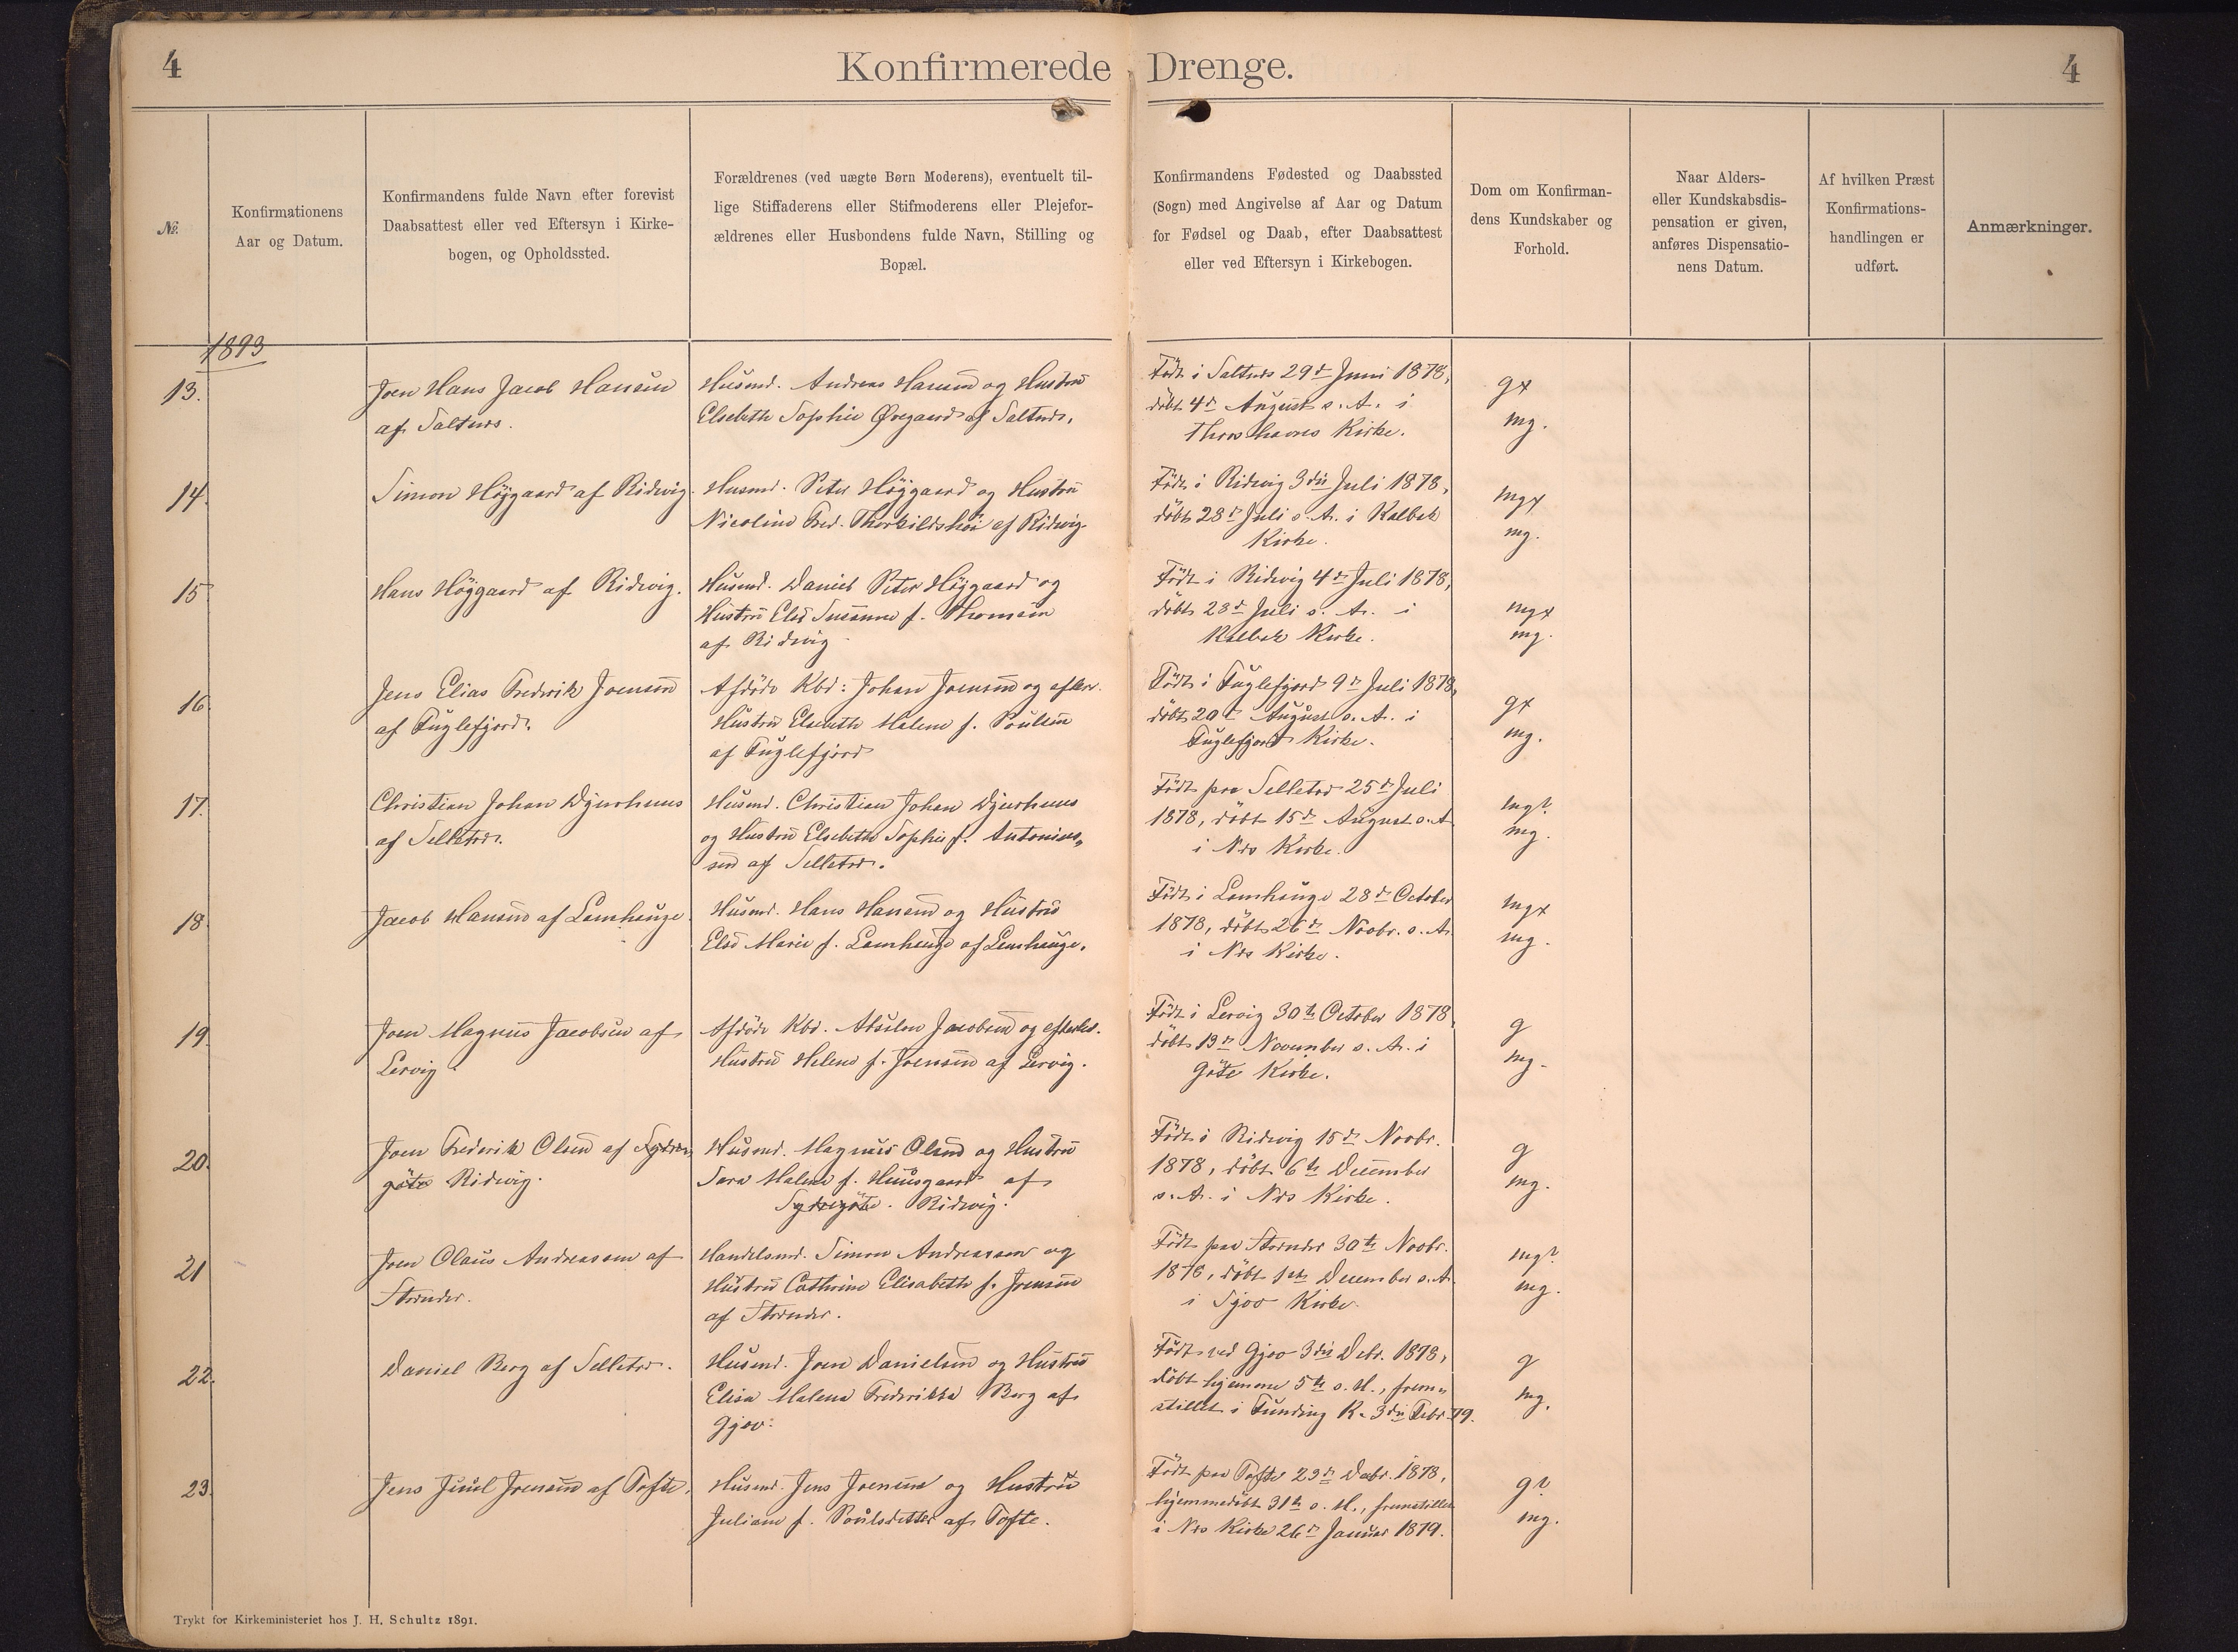 4
Konfirmerede Drenge.
4
№
Konfirmationens
Aar og Datum.
Konfirmandens fulde Navn efter forevist
Daabsattest eller ved Eftersyn i Kirke-
bogen, og Opholdssted.
Forældrenes (ved uægte Børn Moderens), eventuelt til-
lige Stiffaderens eller Stifmoderens eller Plejefor-
ældrenes eller Husbondens fulde Navn, Stilling og
Bopæl.
Konfirmandens Fødested og Daabssted
(Sogn) med Angivelse af Aar og Datum
for Fødsel og Daab, efter Daabsattest
eller ved Eftersyn i Kirkebogen.
Dom om Konfirman-
dens Kundskaber og
Forhold.
Naar Alders-
eller Kundskabsdis-
pensation er given,
anføres Dispensatio-
nens Datum.
Af hvilken Præst
Konfirmations-
handlingen er
udført.
Anmærkninger.
1893
13.
Joen Hans Jacob Hansen
af Saltnes.
Husmd. Andreas Hansen og Hustru
Elsebeth Sophie Øregaard af Saltnes.
Født i Saltnes 29d Juni 1878,
döbt 4d August s. A. i
Thorshavns Kirke.
g×
mg.
14.
Simon Höjgaard af Ridevig.
Husmd. Peter Höjgaard og Hustru
Nicoline Fred. Thorkildshöi af Ridevig.
Födt i Ridevig 3die Juli 1878,
döbt 28d Juli s. A. i Kalbak
Kirke.
mg×
mg.
15
Hans Höjgaard af Ridevig.
Husmd. Daniel Peter Höjgaard og
Hustru Else Susanne f. Thomsen
af Ridevig
Födt i Ridevig 4d Juli 1878,
döbt 28d Juli s. A. i
Kalbak Kirke.
mg×
mg.
16.
Jens Elias Fredrik Joensen
af Fuglefjord.
Afdöde Kbd: Johan Joensen og efterl.
Hustru Elsebeth Malene f. Poulsen
af Fuglefjord
Födt i Fuglefjord 9d Juli 1878,
döbt 20d August s. A. i
Fuglefjord Kirke.
g×
mg.
17.
Christian Johan Djurhuus
af Selletræ.
Husmd. Christian Johan Djurhuus
og Hustru Elsebeth Sophie f. Antonius-
sen af Selletræ.
Födt paa Selletræ 25d Juli
1878, döbt 15d August s. A.
i Nes Kirke.
mg?
mg.
18.
Jacob Hansen af Lamhauge.
Husmd. Hans Hansen og Hustru
Else Marie f. Lamhauge af Lamhauge.
Födt i Lamhauge 28d October
1878, döbt 26d Novbr. s. A.
i Nes Kirke.
mg×
mg.
19.
Joen Magnus Jacobsen af
Lervig.
Afdöde Kbd. Absalon Jacobsen og efterlev.
Hustru Helene f. Joensen af Lervig.
Födt i Lervig 30te October 1878,
döbt 13d November s. A. i
Göte Kirke.
g
mg.
20.
Joen Frederik Olsen af Sydre-
göte Ridevig.
Husmd. Magnus Olsen og Hustru
Sara Malene f. Huusgaard af
Sydregöte. Ridevig.
Födt i Ridevig 15d Novbr.
1878, döbt 6te December
s. A. i Nes Kirke.
g
mg.
21
Joen Olaus Andreassen af
Strænder.
Handelsmd. Simon Andreassen og
Hustru Cathrine Elisabeth f. Joensen
af Strænder.
Födt paa Strænder 30te Novbr.
1878, döbt 1ste December s. A.
i Sjov Kirke.
mg?
mg.
22.
Daniel Berg af Selletræ.
Husmd. Joen Danielsen og Hustru
Elisa Malene Frederikke Berg af
Gjov:
Födt ved Gjov 3die Debr. 1878,
döbt hjemme 5te s. M., frem-
stillet i Funding K. 3die Febr. 79.
g
mg.
23.
Jens Juul Joensen af Tofte.
Husmd. Jens Joensen og Hustru
Juliane f. Poulsdatter af Tofte.
Födt paa Tofte 23d Debr. 1878,
hjemmedöbt 31te s. M., fremstillet
i Nes Kirke 26d Januar 1879.
g?
mg.
Trykt for Kirkeministeriet hos J. H. Schultz 1891.